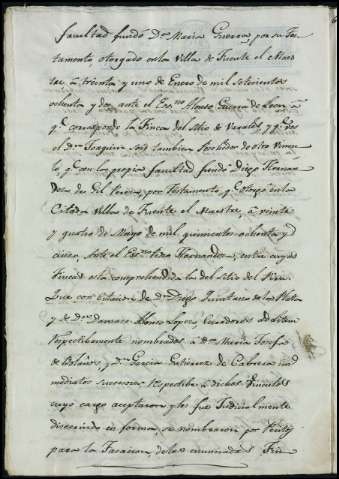 facultad fundó Dª. Maria Guerrera, por su Tes-
tamento otorgado en la Villa de Fuente el Maes-
tre, á treinta y uno de Enero de mil setecientos
ochenta y dos, ante el Esno. Alonso Guerra de Leon á
q.e corresponde la Finca del Sitio de y q.e dos
el dn. Joaquin son tambien Poshedor de otro Vincu-
lo q.e con los propios facultad fundó Diego Hernan-
des del por Testamento q.e otorgó en la
Citada Villa de Fuente el Maestre, á veinte
y quatro de Mayo de mil quinientos ochenta y
cinco, ante el Esno. Hernandez, entre cuyas
Fincas está comprehendida la del Sitio del
Que con Citacion de dn. Diego Quintano de la
y de dn. Damaso Alonso Lopez Curadores ad Litem
respectibamente nombrados á dª. Maria Josefa
de Bolaños, y dn. Garcia Gutierrez de Cabrera in-
mediatos sucesores respectibe á dichos Vinculos
cuyo cargo aceptaron, y les fue Judicialmente
discernido en forma, se nombraron por Peritos
para la Tasacion de las enunciadas Fin-